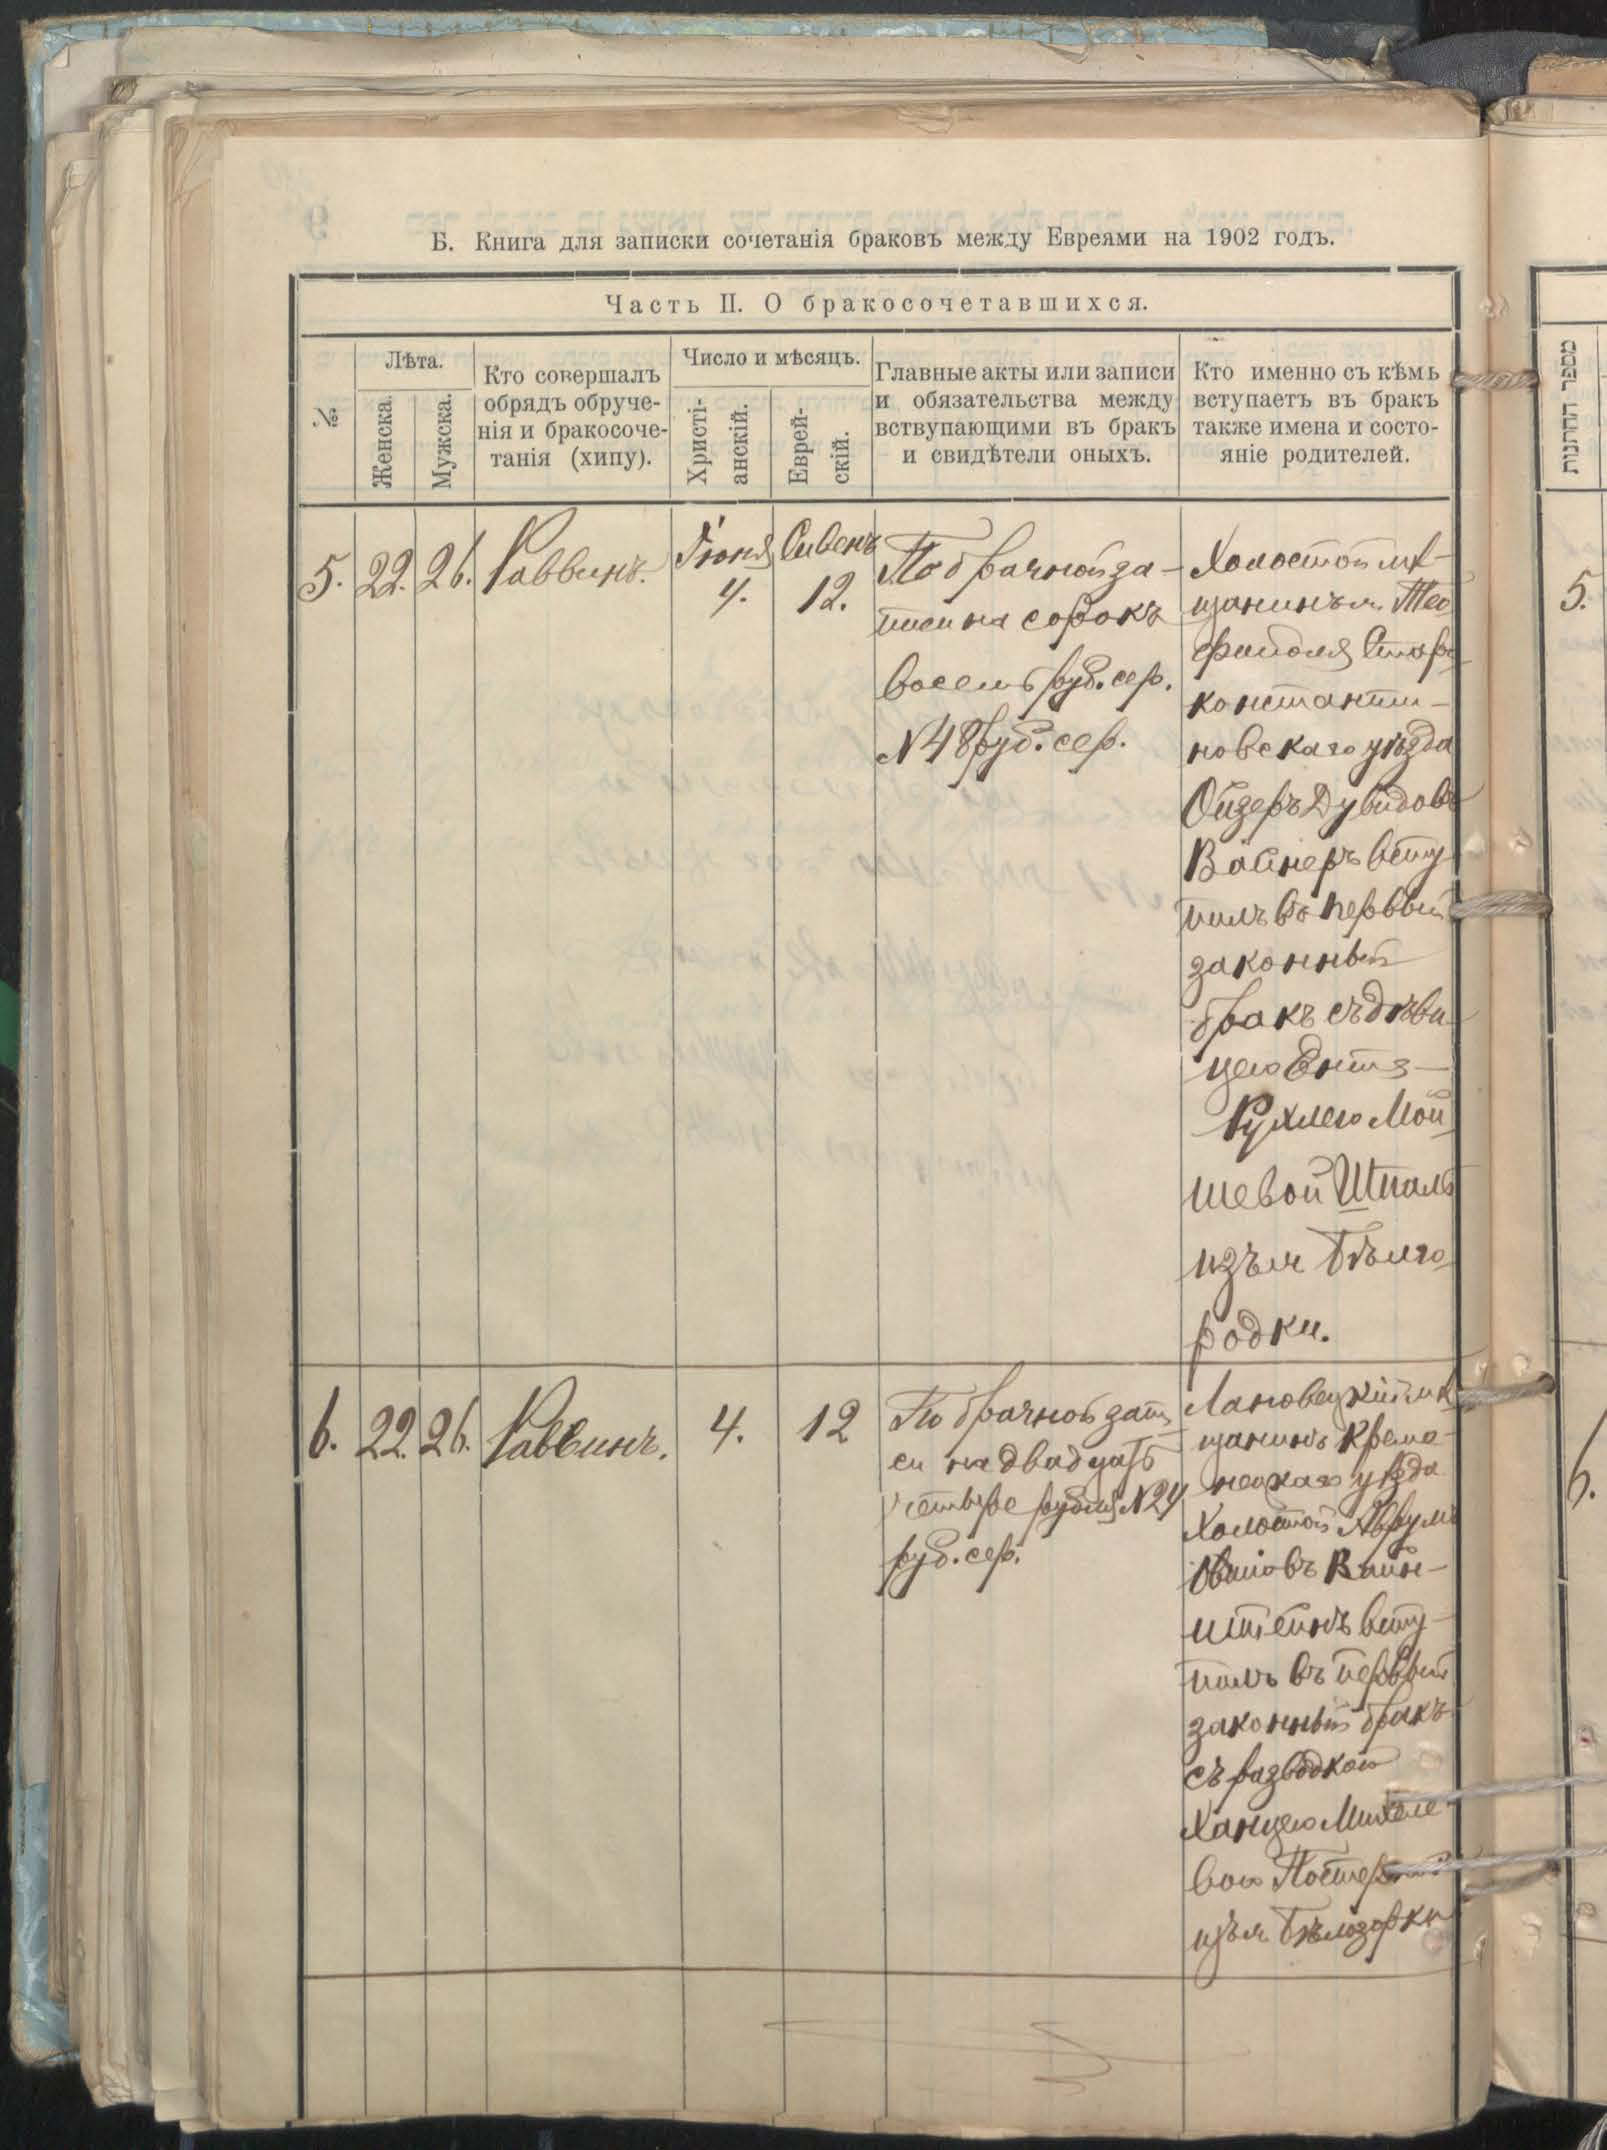 Б. Книга для записки сочетанія браковъ между Евреями на 1902 годъ.
Часть II. О бракосочетавшихся.
№
Лѣта.
Женска.
Мужска.
Кто совершалъ
обрядъ обруче-
нія и бракосоче-
танія (хипу).
Число и мѣсяцъ.
Христі-
анскій.
Еврей-
скій.
Главные акты или записи
и обязательства между
вствупающими въ бракъ
и свидѣтели оныхъ.
Кто именно съ кѣмь
вступаетъ въ бракъ
также имена и состо-
яніе родителей.
5. 22. 26. Раввинъ.
Іюня
4.
Сивенъ
12.
По брачной за-
писи на сорокъ
восемь руб. сер.
№ 48 руб. сер.
Холостой мѣ-
щанинъ м. Тео
фиполя Старо
константи-
новскаго уѣзда
Ойзеръ Дувидовъ
Вайнеръ всту
пилъ въ первый
законный
бракъ съ дѣви
цею Ентя-
Рухлею Мой
шевой Шпаль
изъ м Бѣлго
родки.
6. 22. 26. Раввинъ. 4. 12
По брачной запи
си на двадцать
четыре рубля № 24
руб. сер.
Лановецкій мѣ
щанинъ Креме-
нецкаго уѣзда
Холостой Аврумъ
Вайн-
штейнъ всту-
пилъ въ первый
законный бракъ
съ разводкой
Ханцею Михеле
вой
изъ м. Бѣлозорки
מספר החתונות
5.
6.